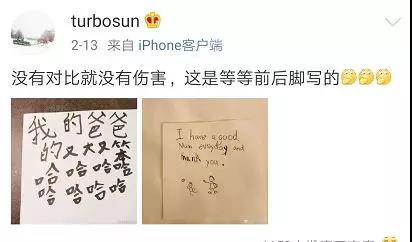 turbosun
2-13 来自 iPhone客户端
没有对比就没有伤害，这是等等前后脚写的
我的爸爸
的又大又笨
哈哈哈哈
哈哈哈哈
I have a good
Mum everyday and
thank you.